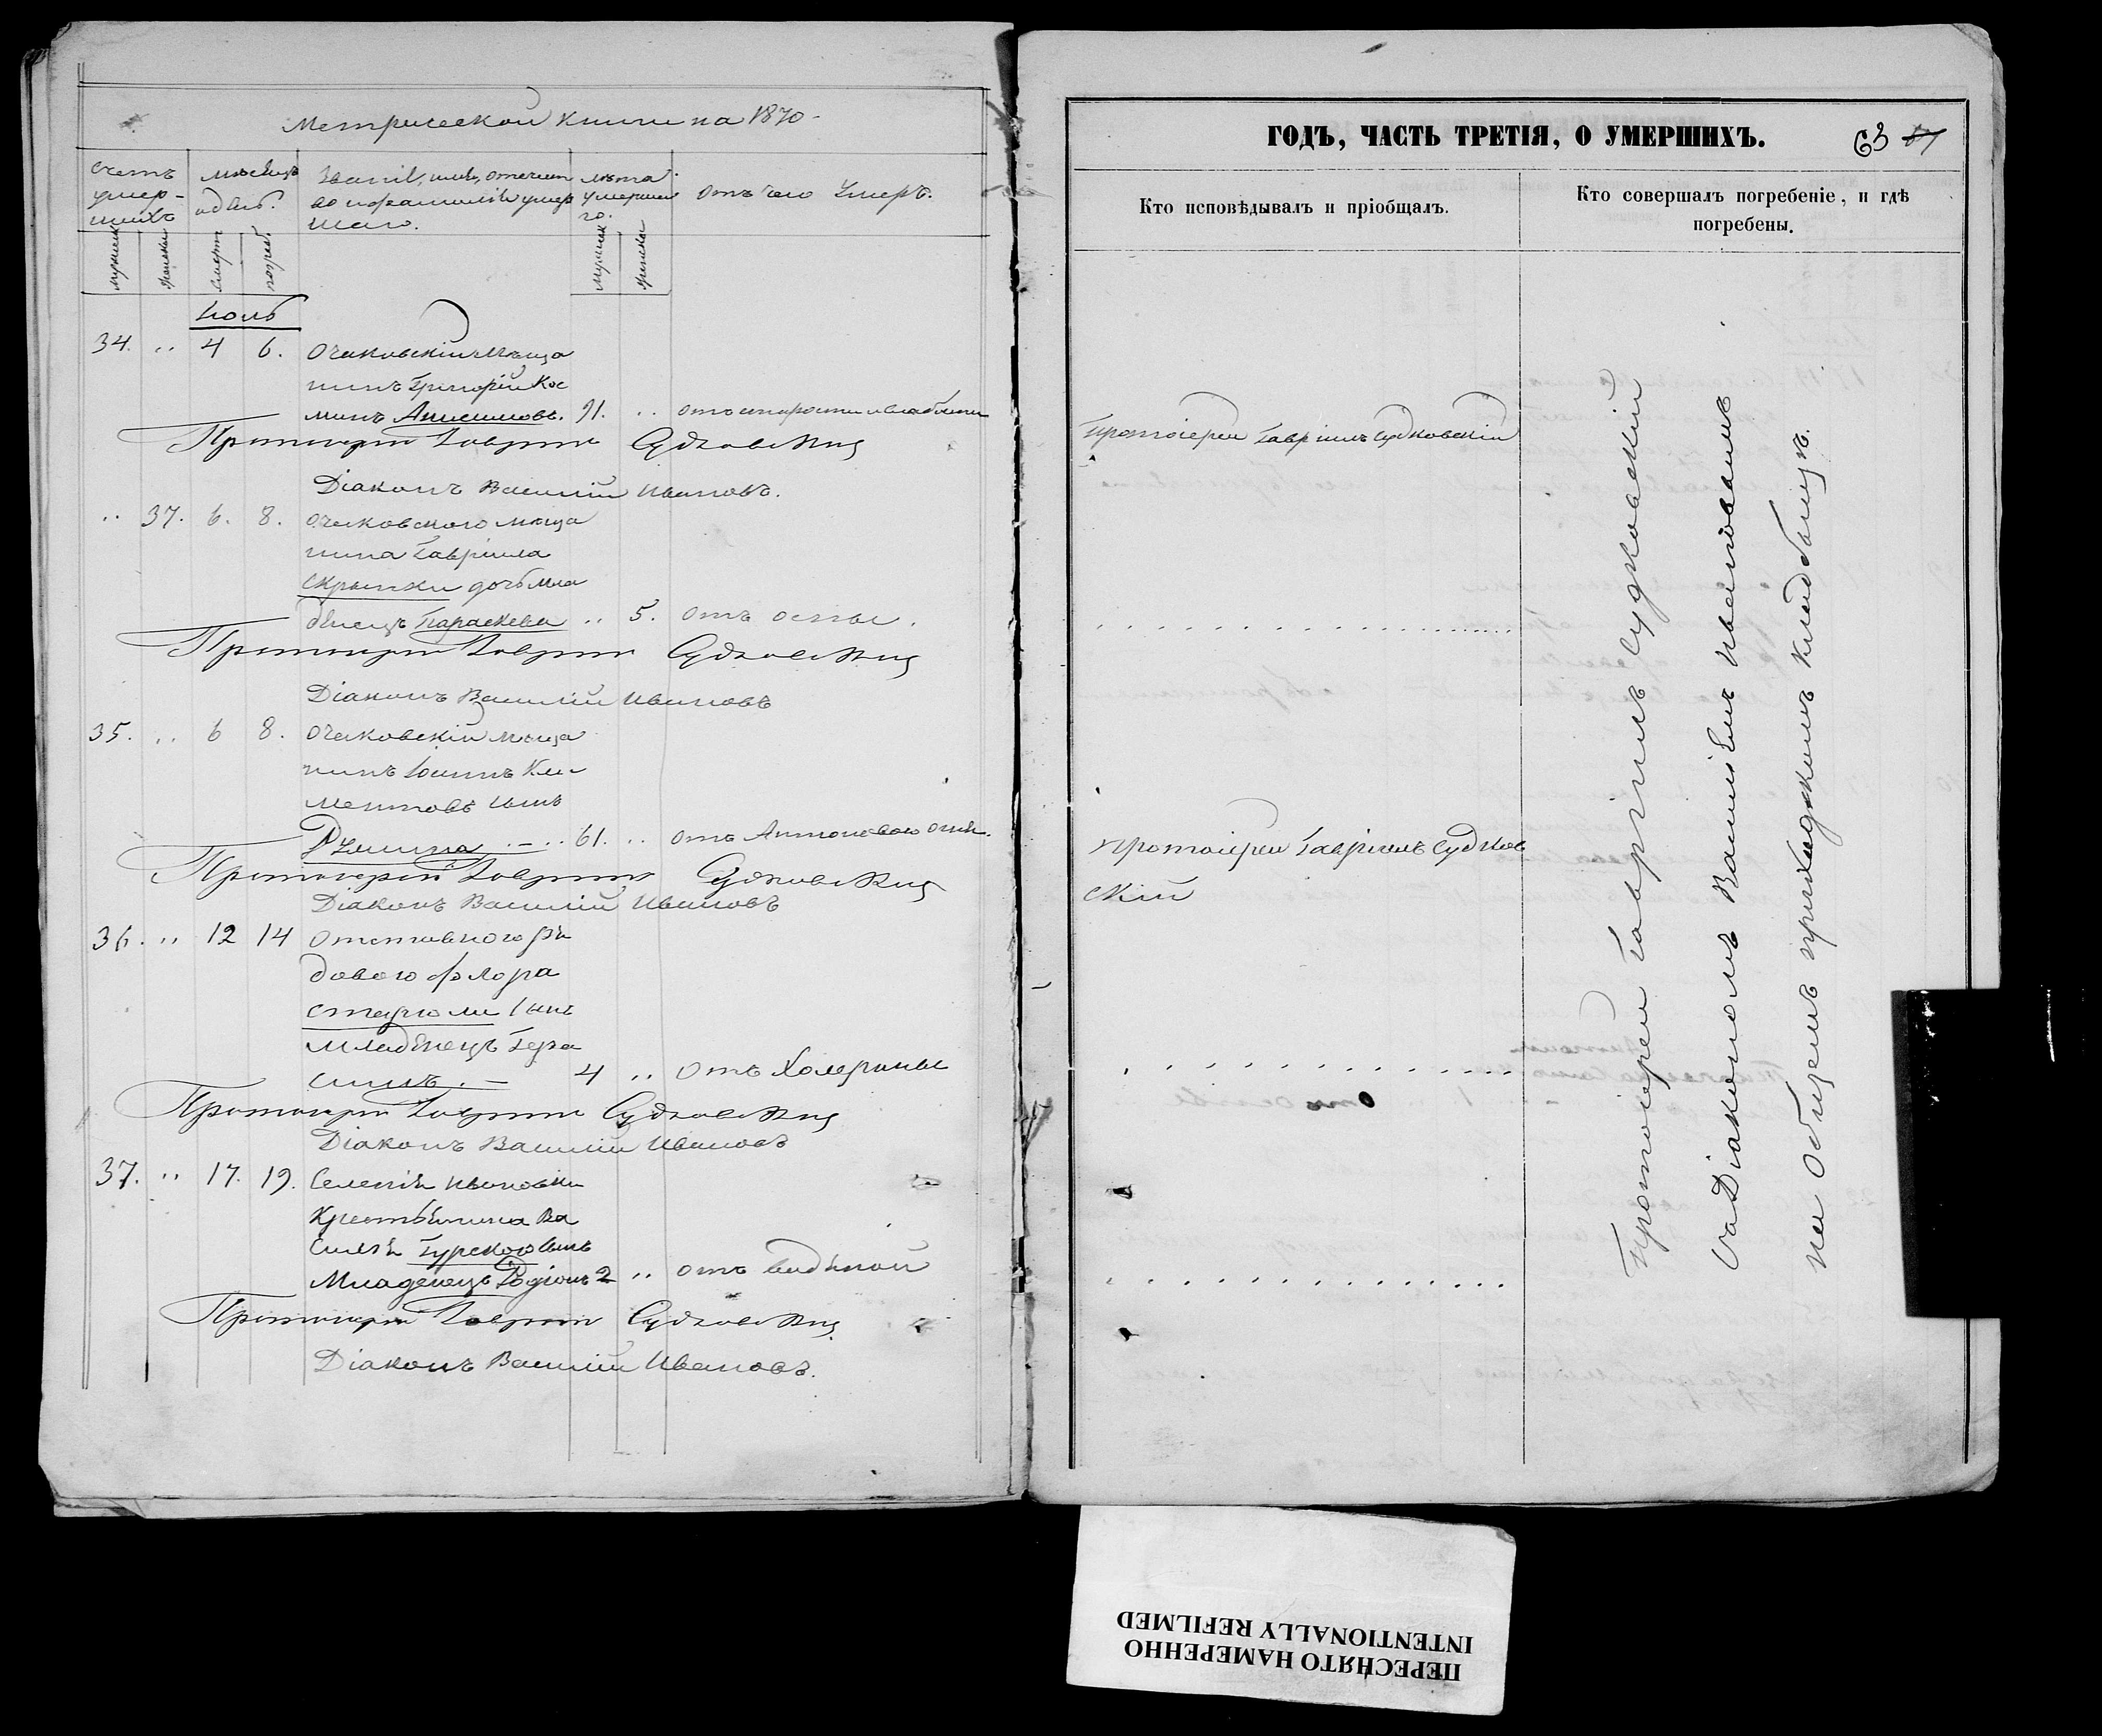 Метрической книги на 1870
Счетъ умер-шихъ
Мѣсяцъ и день.
Званіе, имя, отчество и фамилія умершаго.
Лѣта умершаго.
Отъ чего умеръ.
Мужеск.
Женска
Смерти
погреб.
Мужеск.
Женска
Іюль
34. .. 4 6. Очаковскій мѣща
нинъ Григорій Кос
минъ Анисимовъ. 91. .. отъ старости и слабости
Протоіерей Гавріилъ Судковскій
Діаконъ Василій Ивановъ.
.. 37. 6. 8. Очаковскаго мѣща
нина Гавріила
Скрыпки дочь мла
денецъ Параскева .. 5. отъ оспы.
Протоіерей Гавріилъ Судковскій
Діаконъ Василій Ивановъ
35. .. 6 8. Очаковскій мѣща
нинъ Іоаннъ Кли
ментовъ сынъ
61. .. отъ Антонова огня.
Протоіерей Гавріилъ Судковскій
Діаконъ Василій Ивановъ
36. .. 12 14 Отставного ря
дового Флора
сынъ
младенецъ Гера
симъ. — 4 .. отъ Холерины
Протоіерей Гавріилъ Судковскій
Діаконъ Василій Ивановъ
37. .. 17. 19. Селенія Ивановки
Крестьянина Ва
силія Гурскаго сынъ
Младенецъ Родіонъ 2 .. отъ
Протоіерей Гавріилъ Судковскій
Діаконъ Василій Ивановъ.
ГОДЪ, ЧАСТЬ ТРЕТІЯ, О УМЕРШИХЪ.
63
Кто исповѣдывалъ и пріобщалъ.
Кто совершалъ погребеніе, и гдѣ
погребены.
Протоіерей Гавріилъ Судковскій
Протоіерей Гавріилъ Судков
скій
Протоіерей Гавріилъ Судковскій
съ Діакономъ Василіемъ Ивановымъ
на общемъ приходскомъ кладбищѣ.
ПЕРЕСНЯТО НАМЕРЕННО
INTENTIONALLY REFILMED